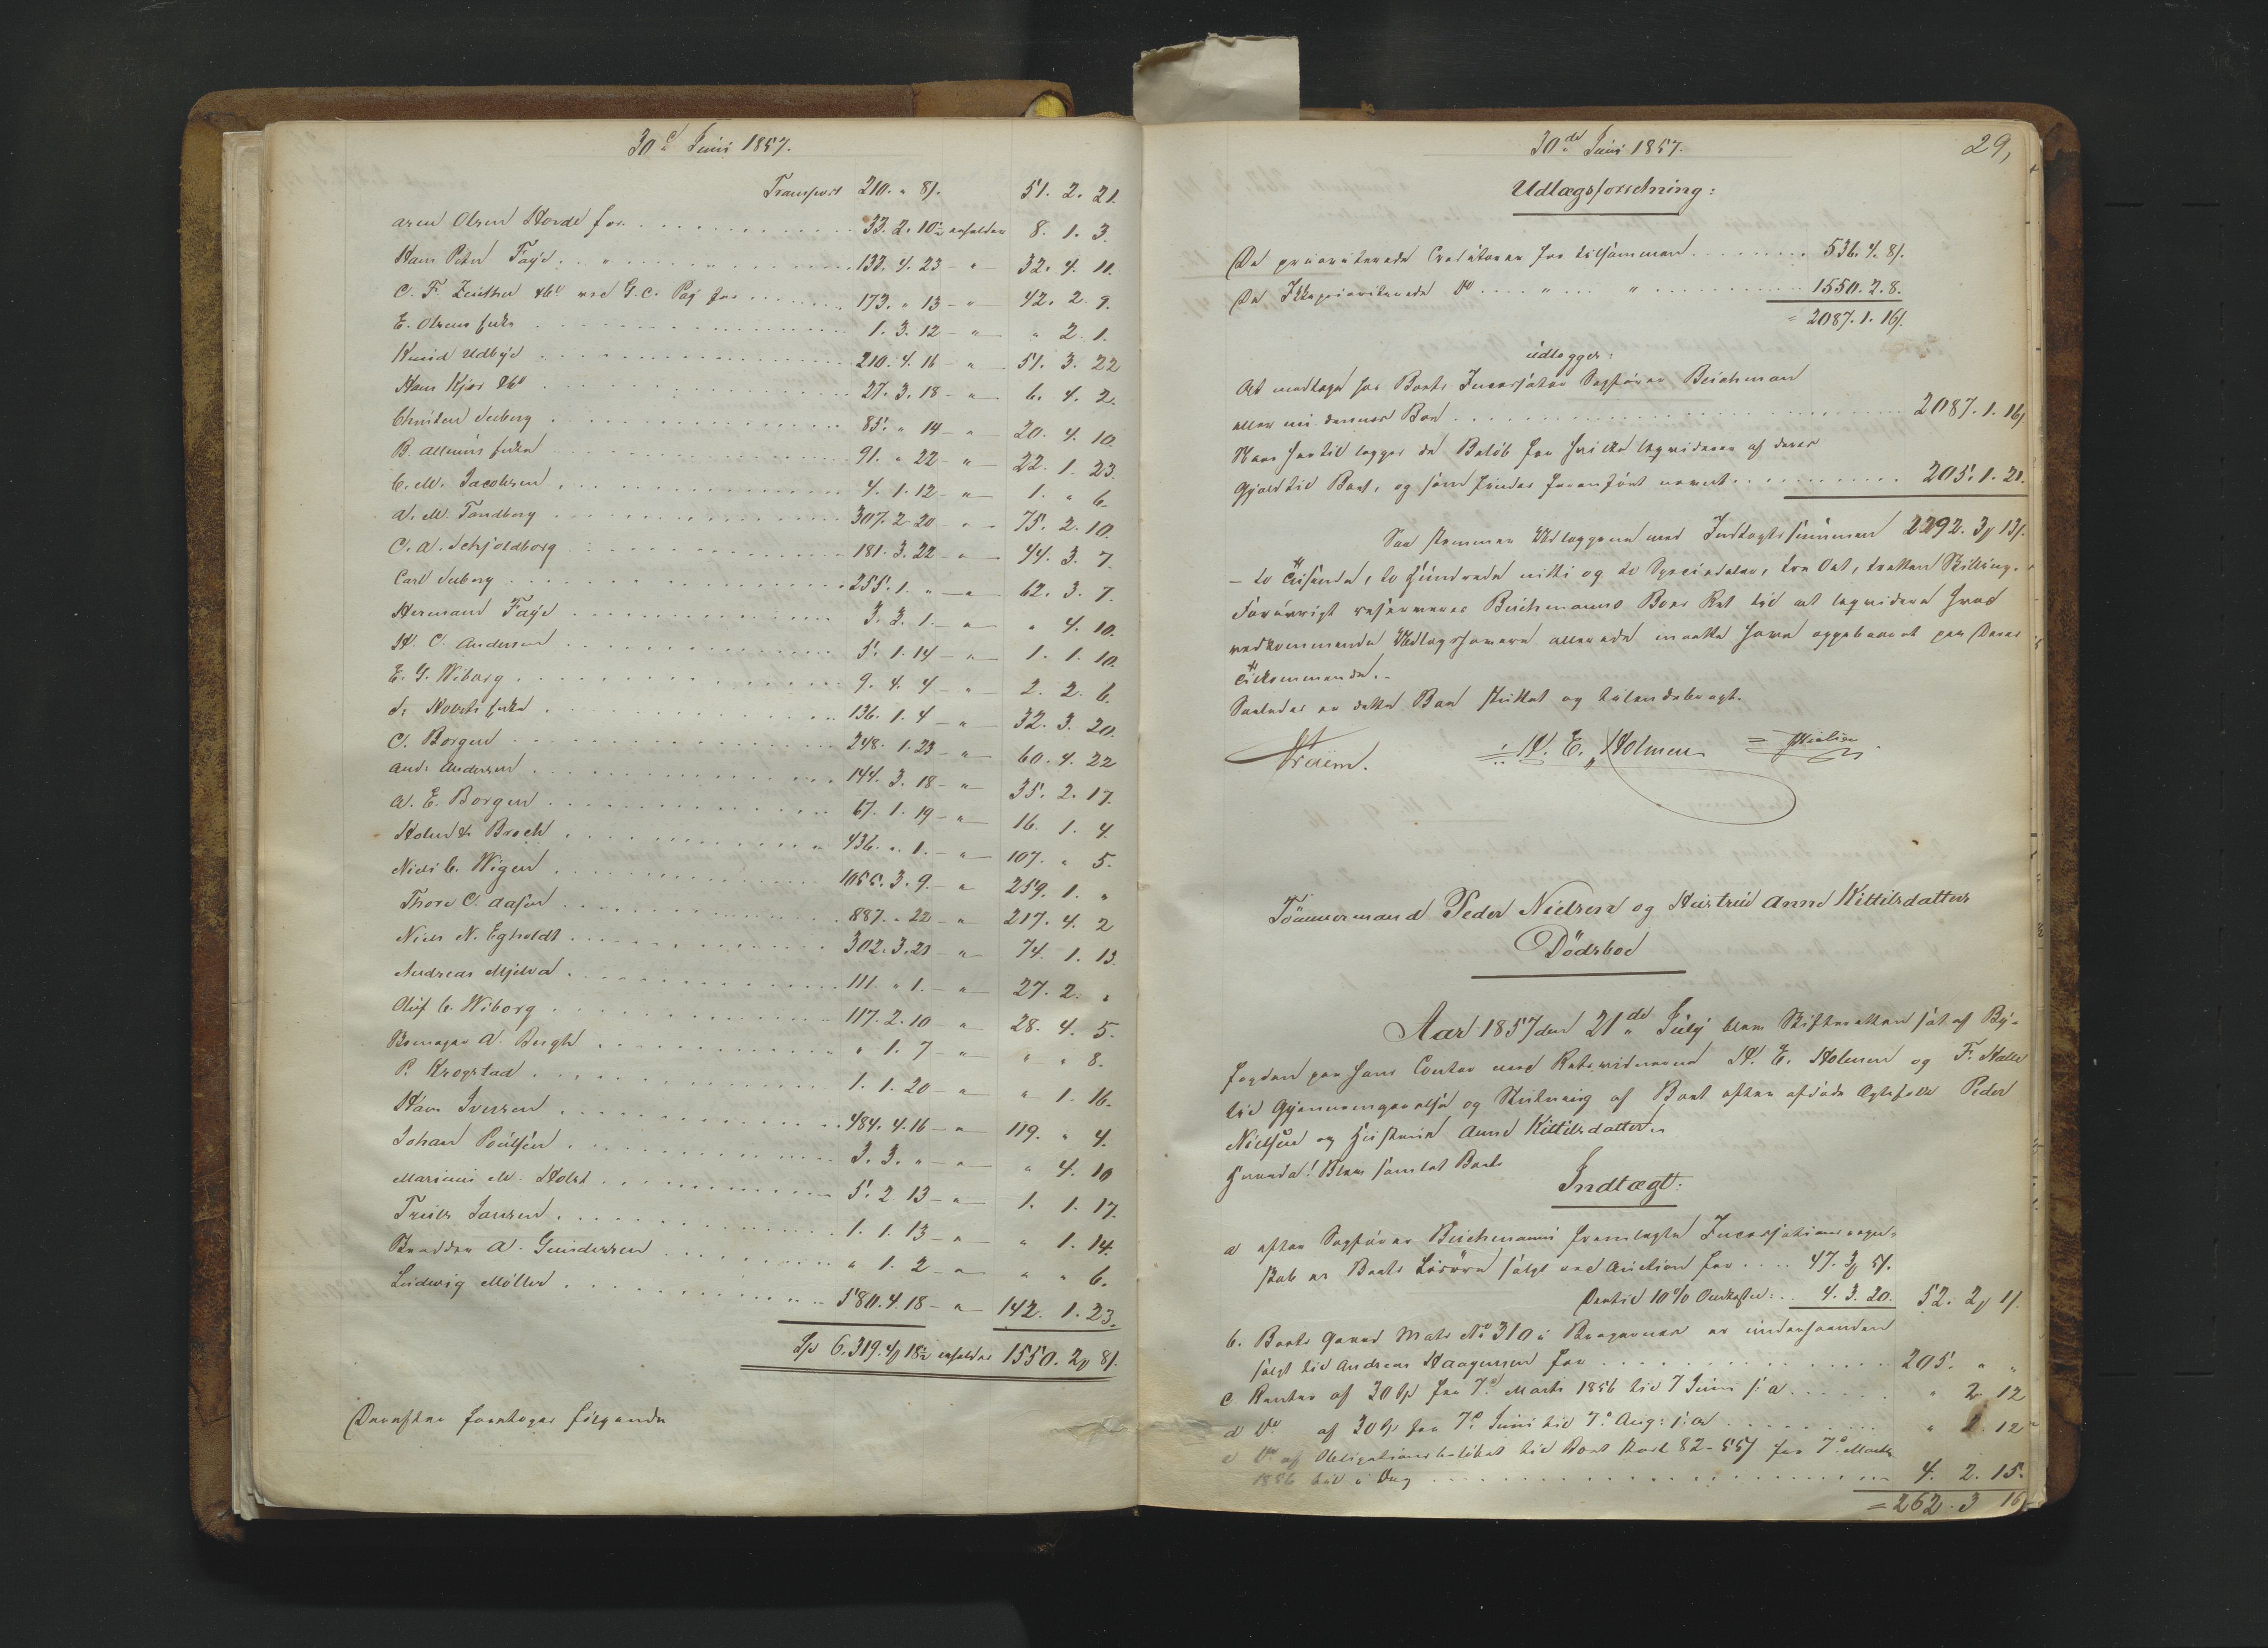 30 Juni 1857.
Transport 210. " 8/. 51. 2. 21.
aren Olsen Horde for 33. 2. 10 erholder 8. 1. 3.
Hans Peter Faye . " 133. 4. 23 - " - 32. 4. 11.
C. F. Zeuthen &Co ved G. C. Paÿ for 173. " 13 - " 42. 2. 9.
E. Olsens Enke 1. 3. 12 - " " 2. 1.
Knud Udbye 210. 4. 16 - " 51. 3. 22
Hans Kjær &Co 27. 3. 18 - " - 6. 4. 2.
Christen Seeberg 85. " 14 - " 20. 4. 10.
B. Allums Enke 91. " 22 - " 22. 1. 23.
C. M. Jacobsen 4. 1. 12 - " 1. " 6.
A. M. Tandberg 307. 2. 20 - " - 75. 2. 10.
C. A. Schjoldborg 181. 3. 22 - " 44. 3. 7.
Carl Seeberg 255. 1. " - " 62. 3. 7.
Hermand Faye 3. 3. 1. - " " 4. 10.
H. C. Andersen 5. 1. 14 - " - 1. 1. 10.
E. G. Wiborg 9. 4. 4 - " - 2. 2. 6.
Enke 136. 1. 4 - " 32. 3. 20.
C. Borgen 248. 1. 23 - " 60. 4. 22
And: Andersen 144. 3. 18 - " 35. 2. 17.
A. E. Borgen 67. 1. 19 - " 16. 1. 4.
Holm & Broch 436. " 1. - " 107. " 5.
Niels C. Wigen 1055. 3. 9. - " 259. 1. "
Thore C. Aasen 887. " 22 - " 217. 4. 2
Niels N. Egholdt 302. 3. 21 - " 74. 1. 13.
Andreas Mjelva 111. " 1. - " 27. 2. "
Oluf C. Wiborg 117. 2. 10 - " 28. 4. 5.
A. Bergh " 1. 7 - " " " 8.
P. Krogstad 1. 1. 20 - " " 1. 16.
Hans Iversen 484. 4. 16 - " 119. " 4.
Johan Poulsen 3. 3. " - " " 4. 10
Marinus M. Holst 5. 2. 13 - " 1. 1. 17.
Truls Jansen 1. 1. 13 - " " 1. 14.
A. Gundersen " 1. 2 - " " " 6.
Ludvig Møller 580. 4. 18 - " 142. 1. 23.
6,319. 4 18 erholder 1550. 2 8/.
Derefter foretoges følgende
30de Juni 1857. 29,
Udlægsforretning:
De prioriterede Creditorer for tilsammen 536. 4. 8/.
De Ikkeprioriterede Do " " 1550. 2. 8.
= 2087. 1. 16/.
udlægges:
At modtage hos Boets Incassator Sagfører Beichman
eller nu dennes Boe 2087. 1. 16/
Naar hertil lægges de Beløb for hvilke liqvideres af deres
Gjæld til Boet, og som findes foranført nævnt 205. 1. 21.
Saa stemmer Udlæggene med Indtægtssummen 2292. 3 13/.
- to Tusinde, to Hundrede nitti og to Speciedaler, tre Ort, tretten Skilling. -
Forøvrigt reserveres Beichmanns Boes Ret til at liqvidere hvad
vedkommende Udlægshavere allerede maatte have oppebaaret paa Deres
Tilkommende. -
Saaledes er dette Boe sluttet og tilendebragt.
H. E. Holmen
Tømmermand Peder Nielsen og Hustrue Anne Kittilsdatters
Dødsboe
Aar 1857 den 21de July blev Skifteretten sat af By-
fogden paa hans Contor med Retsvidnerne H. E. Holmen og F. Halle
til Gjennemgaaelse og Slutning af Boet efter afdøde Ægtefolk Peder
Nielsen og Hustrue Anne Kittilsdatter.
hvorda! Blev samlet Boets
Indtægt:
a efter Sagfører Beichmanns fremlagte Incassationsregn-
skab er Boets Løsøre solgt ved Auction for 47. 3 5/.
Dertil 10% Omkoster: 4. 3. 20. 52. 2 1/.
b. Boets Gaard Matr No 310 i Bragernæs er underhaanden
solgt til Andreas Haagensen for 205. " "
c. Renter af 30 fra 7 Marts 1856 til 7 Juni s. A. " 2 12
d Do af 30 fra 7 Juni til 7 Aug: s. A. " 2. 12
e Do af Obligationsbeløbet til Boet stort 82 - 55/ fra 7 Marts
1856 til i Dag 4. 2. 15.
= 262. 3 16